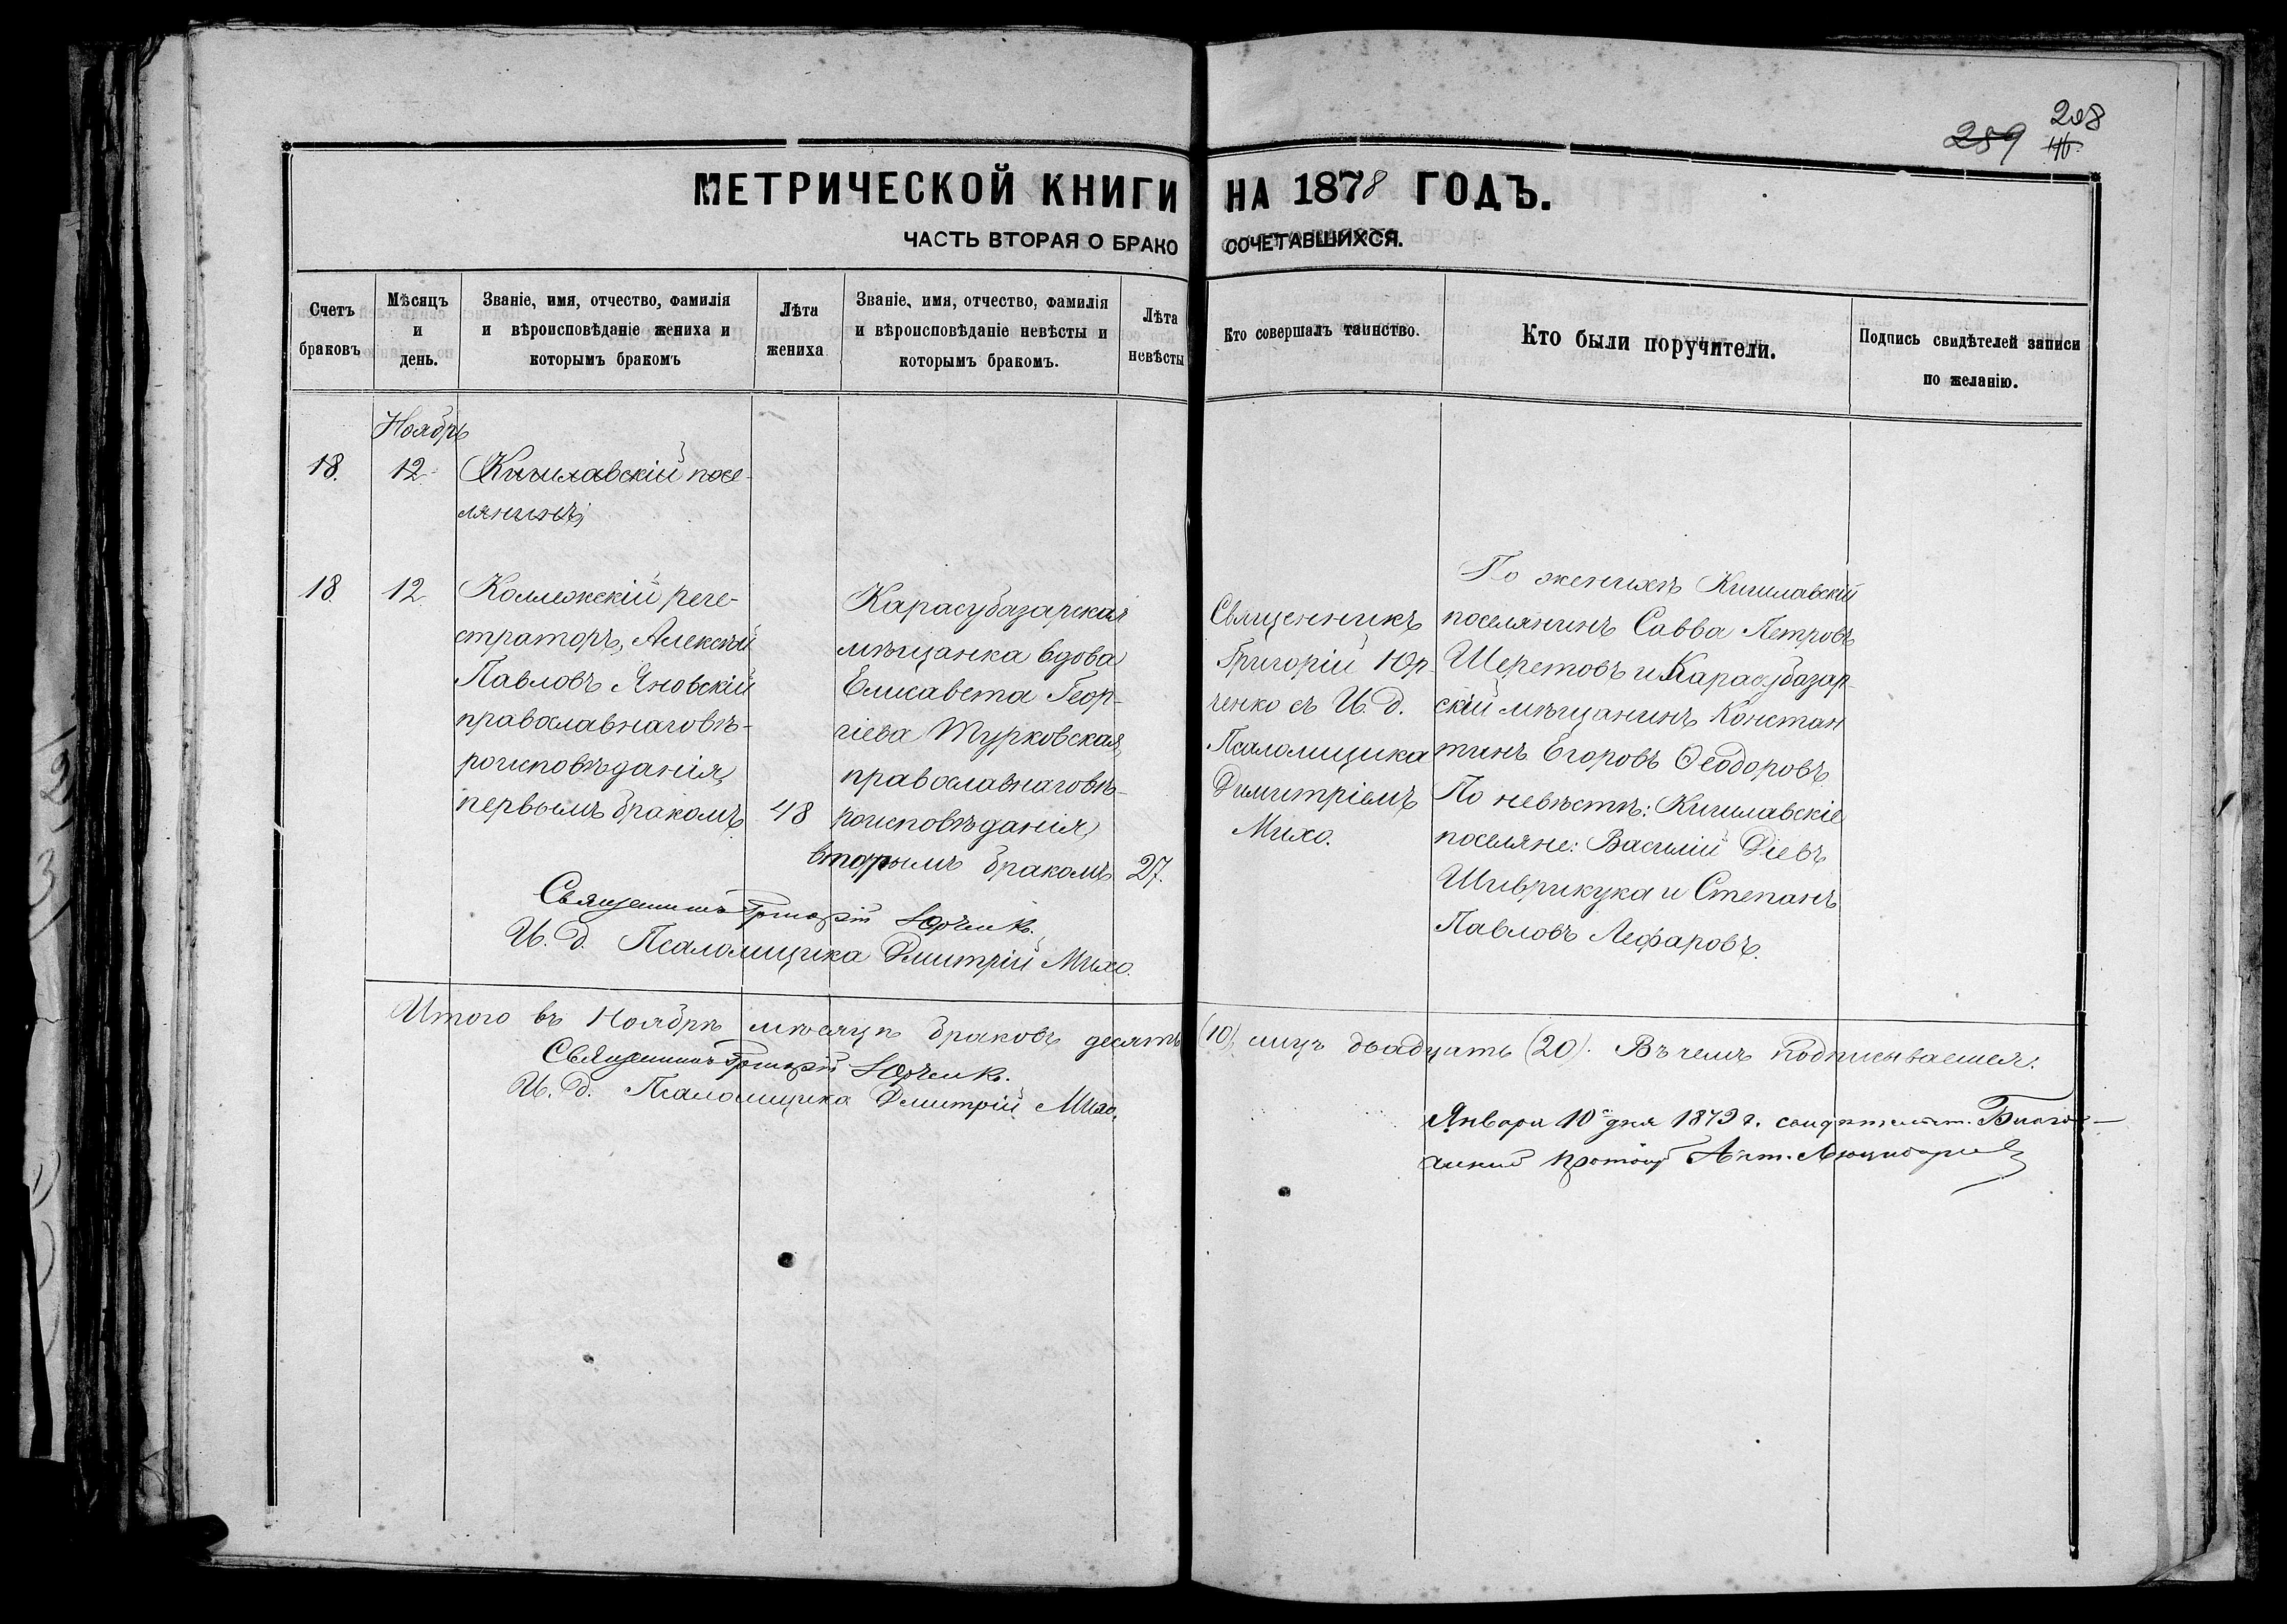 208
289 146
МЕТРИЧЕСКОЙ КНИГИ НА 1878 ГОДЪ.
ЧАСТЬ ВТОРАЯ О БРАКО СОЧЕТАВШИХСЯ.
Счетъ
браковъ
Мѣсяцъ
и
день.
Званіе, имя, отчество, фамилія
и вѣроисповѣданіе жениха и
которымъ бракомъ
Лѣта
жениха
Званіе, имя, отчество, фамилія
и вѣроисповѣданіе невѣсты и
которымъ бракомъ.
Лѣта
невѣсты
Кто совершалъ таинство.
Кто были поручители.
Подпись свидѣтелей записи
по желанію.
Ноябрь
18. 12. Кишлавскій посе-
лянинъ,
18. 12.
Коллежскій реге-
страторъ, Алексѣй
Павловъ Яновскій
православнаго вѣ-
роисповѣданія,
первымъ бракомъ. 48
Карасубазарская
мѣщанка вдова
Елисавета Геор-
гіева Турковская,
православнаго вѣ-
роисповѣданія,
вторымъ бракомъ 27.
Священникъ
Григорій Юр-
ченко съ И. д.
Псаломщика
Димитріемъ
Михо.
По женихѣ Кишлавскій
поселянинъ Савва Петровъ
Шеретовъ и Карасубазар-
скій мѣщанинъ Констан
тинъ Егоровъ Ѳеодоровъ.
По невѣстѣ: Кишлавскіе
поселяне: Василій Діевъ
Шиврикука и Степанъ
Павловъ Лефаровъ.
Священникъ Григорій Юрченко.
И. д. Псаломщика Дмитрій Михо.
Итого въ Ноябрѣ мѣсяцѣ браковъ десять (10), лицъ двадцать (20). Въ чемъ подписываемся.
Священникъ Григорій Юрченко.
И. д. Псаломщика Дмитрій Михо.
Января 10 дня 1879 г. свидѣтельст. Благо-
чинный протоіер